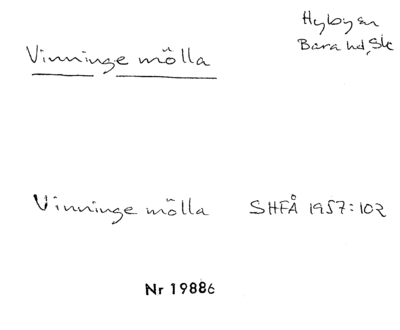 Hyby sn
Bara hd, Sk
Vinninge mölla
Vinninge mölla SHFÅ 1957:102
Nr 19886